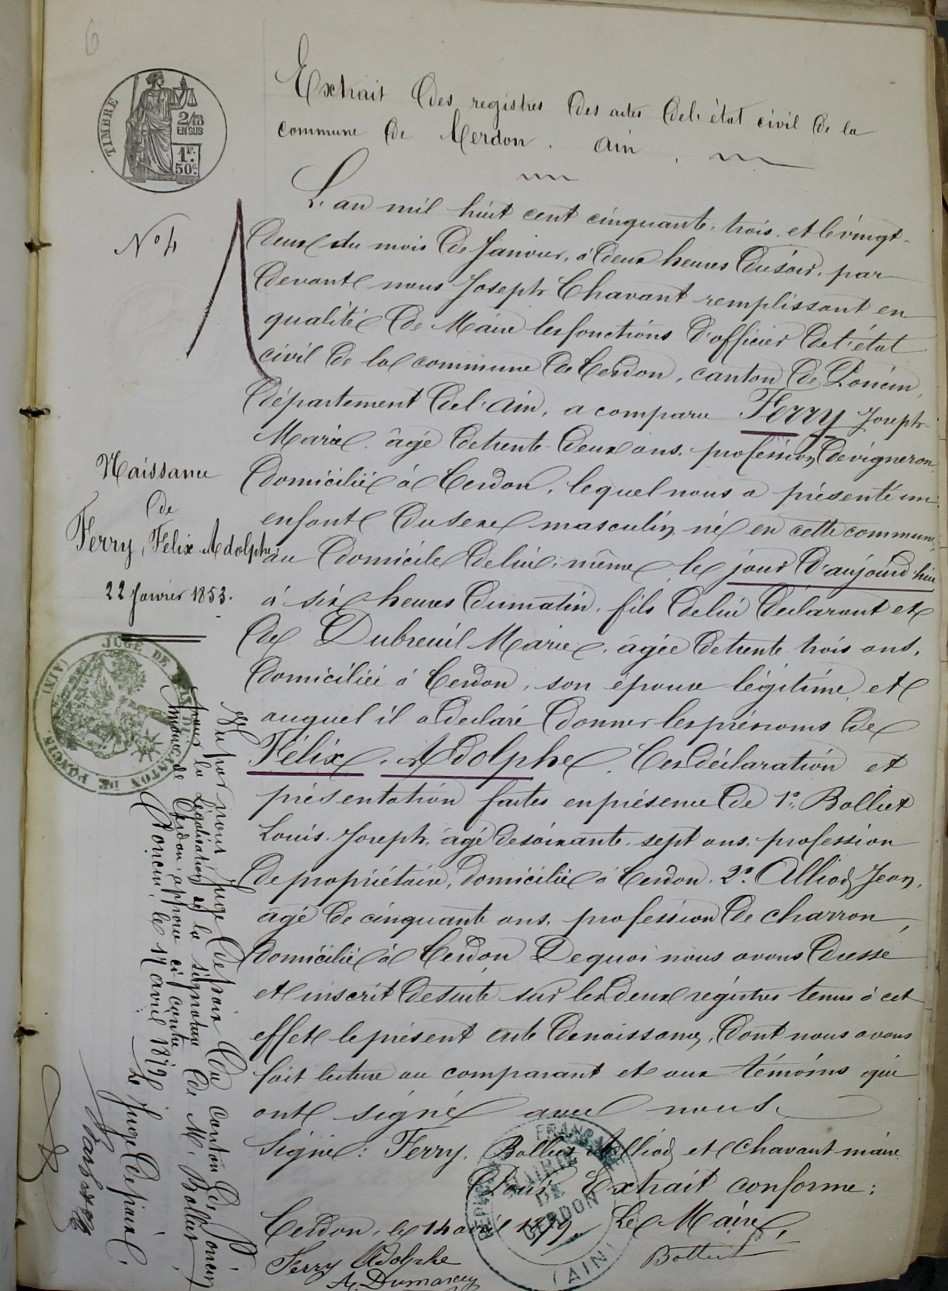 6
TIMBRE
2/10 EN SUS
1F. 50c.
Extrait des registres des actes de l'état civil de la
commune de Cerdon. Ain.
N° 4
L'an mil huit cent cinquante-trois et le vingt-
deux du mois de Janvier, à deux heures du soir, par
devant nous Joseph Chavant remplissant en
qualité de Maire les fonctions d'officier de l'état
civil de la commune de Cerdon, canton de Poncin,
département de l'Ain, a comparu Ferry Joseph
Marie, âgé de trente-deux ans, profession de vigneron
domicilié à Cerdon, lequel nous a présenté un
enfant du sexe masculin né en cette commune,
au domicile de lui-même le jour d'aujourd'hui
à six heures du matin, fils de lui déclarant et
de Dubreuil Marie, âgée de trente trois ans,
domiciliée à Cerdon, son épouse légitime, et
auquel il a déclaré donner les prénoms de
Félix, Adolphe. Ces déclaration et
présentation faites en présence de 1° Bolliet
Louis-Joseph, âgé de soixante-sept ans, profession
de propriétaire, domicilié à Cerdon. 2° Alliod Jean,
âgé de cinquante ans, profession de charron,
domicilié à Cerdon De quoi nous avons dressé
et inscrit de suite sur les deux registres tenus à cet
effet le présent acte de naissance, dont nous avons
fait lecture au comparant et aux témoins qui
ont signé avec nous.
Signé: Ferry, Bolliet Alliod et Chavant maire
Pour Extrait conforme:
Cerdon, le 14 avril 1879 Le Maire,
Ferry Adolphe
A. Dumarey
Bolliet
Naissance
de
Ferry, Félix Adolphe
22 Janvier 1853.
JUGE DE PAIX
CANTON DE PONCIN (AIN)
Vu par nous Juge de paix du canton de Poncin,
pour la légalisation de la signature de M. Bolliet,
maire de Cerdon, apposée ci contre
Poncin, le 17 avril 1879
Le Juge de paix,
RÉPUBLIQUE FRANÇAISE
MAIRIE
DE
CERDON
(AIN)